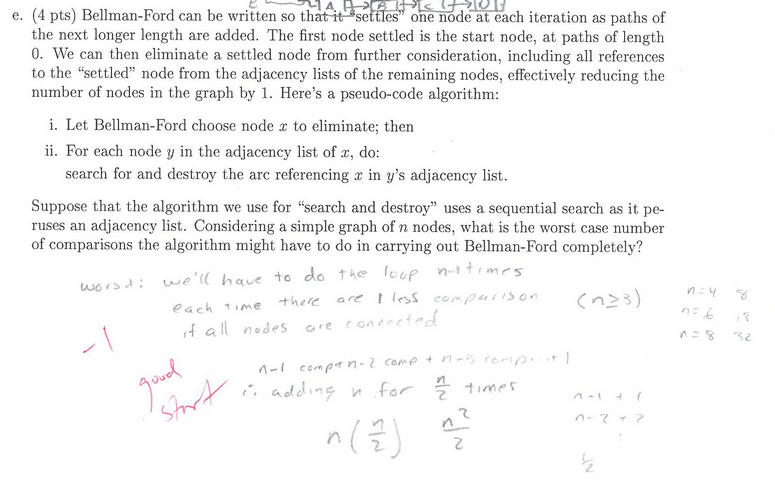 e. (4 pts) Bellman-Ford can be written so that it "settles" one node at each iteration as paths of
the next longer length are added. The first node settled is the start node, at paths of length
0. We can then eliminate a settled node from further consideration, including all references
to the "settled" node from the adjacency lists of the remaining nodes, effectively reducing the
number of nodes in the graph by 1. Here's a pseudo-code algorithm:
i. Let Bellman-Ford choose node x to eliminate; then
ii. For each node y in the adjacency list of x, do:
search for and destroy the arc referencing x in y's adjacency list.
Suppose that the algorithm we use for "search and destroy" uses a sequential search as it pe-
ruses an adjacency list. Considering a simple graph of n nodes, what is the worst case number
of comparisons the algorithm might have to do in carrying out Bellman-Ford completely?
worst: we'll have to do the loop n-1 times
each time there are 1 less comparison (n≥3)
if all nodes are connected
n=4 8
n=6 18
n=8 32
-1
good
start
n-1 comp + n-2 comp + n-3 comp ... + 1
∴ adding n for n/2 times
n(n/2) n²/2
n-1 + 1
n-2 + 2
:
1/2